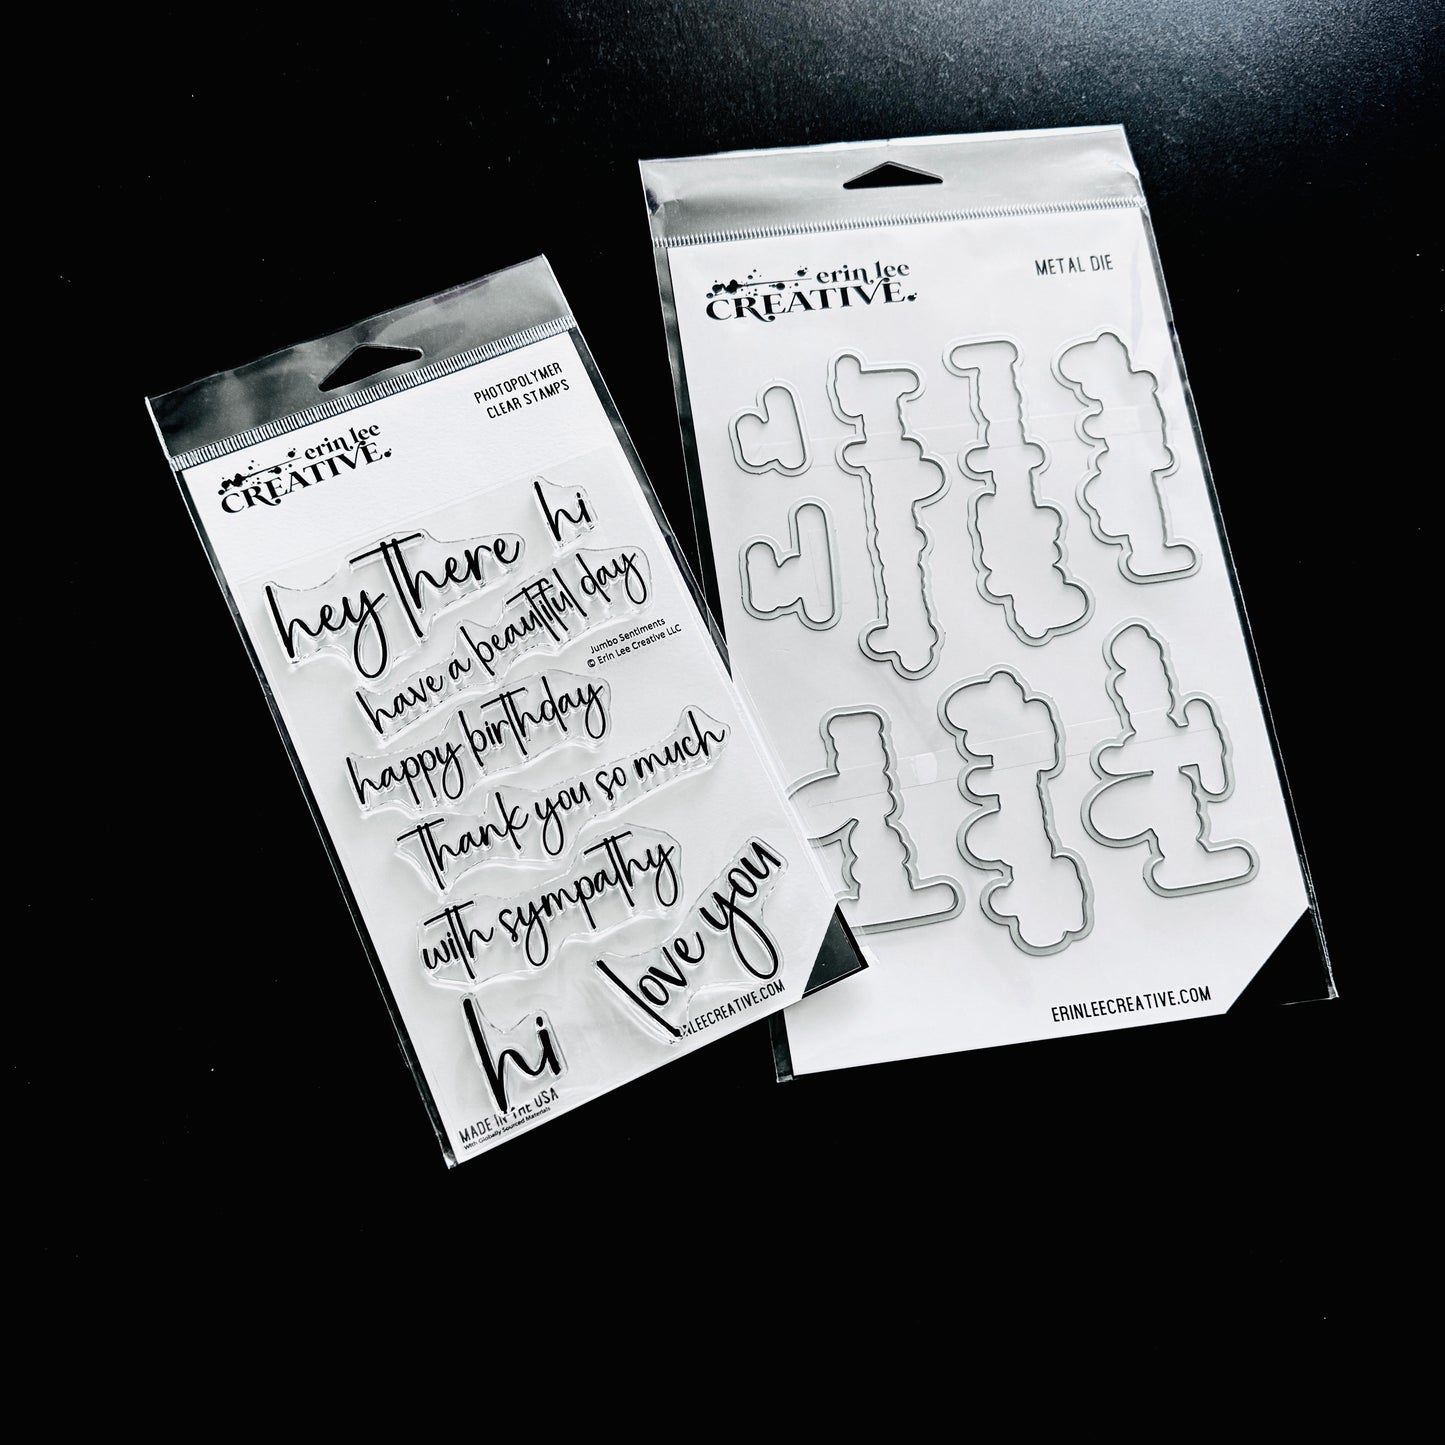 PHOTOPOLYMER
CLEAR STAMPS
erin lee
CREATIVE.
hey there
hi
have a beautiful day
Jumbo Sentiments
© Erin Lee Creative LLC
happy birthday
thank you so much
with sympathy
love you
ERINLEECREATIVE.COM
hi
MADE IN THE USA
With Globally Sourced Materials
erin lee
CREATIVE.
METAL DIE
ERINLEECREATIVE.COM